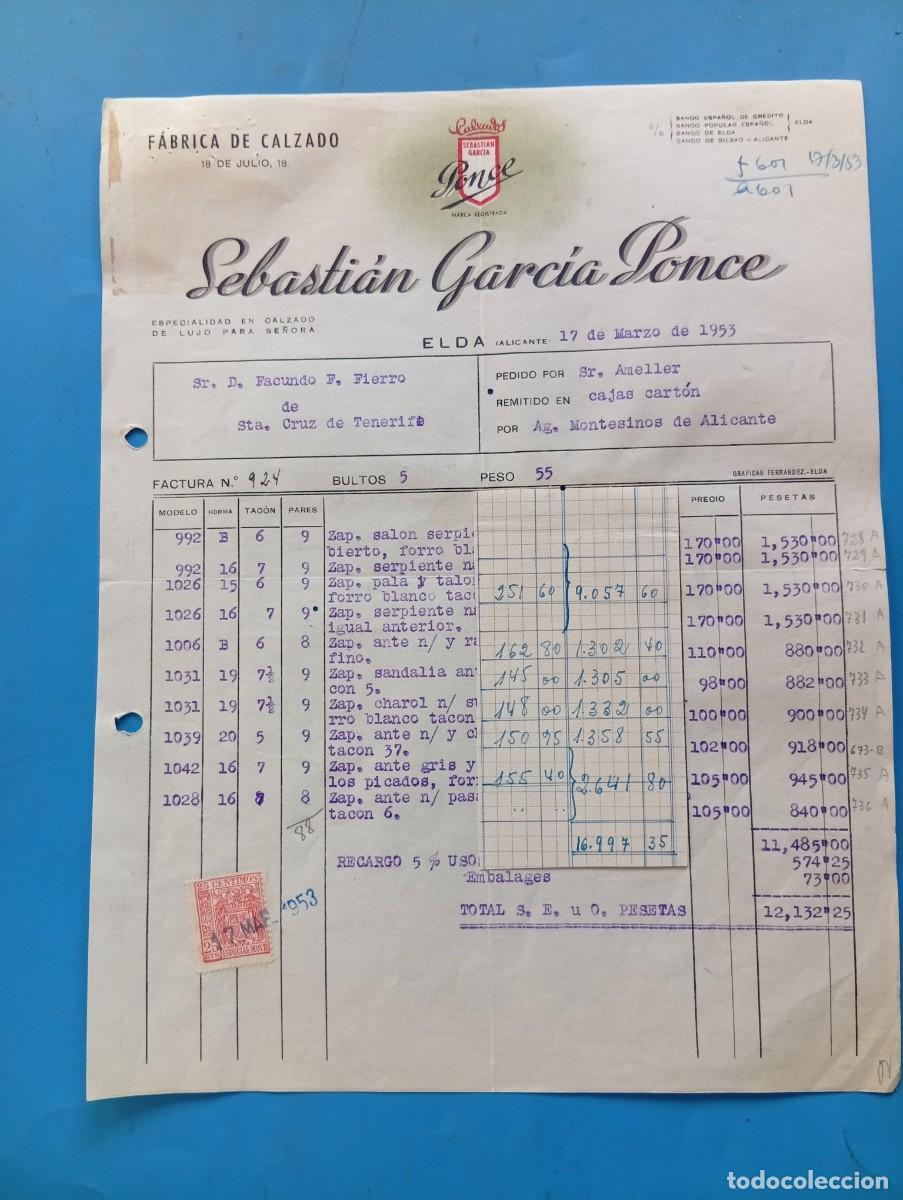 FÁBRICA DE CALZADO
18 DE JULIO, 18
Calzados
SEBASTIAN
GARCIA
Ponce
MARCA REGISTRADA
BANCO ESPAÑOL DE CREDITO
BANCO POPULAR ESPAÑOL
BANCO DE ELDA
BANCO DE BILBAO - ALICANTE
ELDA
17/3/53
Sebastián García Ponce
ESPECIALIDAD EN CALZADO
DE LUJO PARA SEÑORA
ELDA (ALICANTE) 17 de Marzo de 1953
Sr. D. Facundo F. Fierro
de
Sta. Cruz de Tenerife
PEDIDO POR Sr. Ameller
REMITIDO EN cajas cartón
POR Ag. Montesinos de Alicante
FACTURA N.º 924 BULTOS 5 PESO 55
GRAFICAS FERRANDEZ.-ELDA
MODELO NORMA TACÓN PARES PRECIO PESETAS
992 B 6 9 Zap. salon serpi 170"00 1,530"00 728 A
bierto, forro bla 170"00 1,530"00 729 A
992 16 7 9 Zap. serpiente n
1026 15 6 9 Zap. pala y talo 170"00 1,530"00 730 A
forro blanco taco
1026 16 7 9 Zap. serpiente n 170"00 1,530"00 731 A
igual anterior.
1006 B 6 8 Zap. ante n/ y ra 110"00 880"00 732 A
fino.
1031 19 7½ 9 Zap. sandalia an 98"00 882"00 733 A
con 5.
1031 19 7½ 9 Zap. charol n/ s 100"00 900"00 734 A
rro blanco tacon
1039 20 5 9 Zap. ante n/ y c 102"00 918"00 673-B
tacon 37.
1042 16 7 9 Zap. ante gris y 105"00 945"00 735 A
los picados, for
1028 16 8 8 Zap. ante n/ pas 105"00 840"00 736 A
tacon 6.
88
251 60 9.057 60
162 80 1.302 40
145 00 1.305 00
148 00 1.332 00
150 95 1.358 55
155 40 2.641 80
16.997 35
11,485"00
RECARGO 5 % USO 574"25
Embalages 73"00
TOTAL S. E. u O. PESETAS 12,132"25
25 CENTIMOS
ESPECIAL MOVIL
17 MAR. 1953
todocoleccion